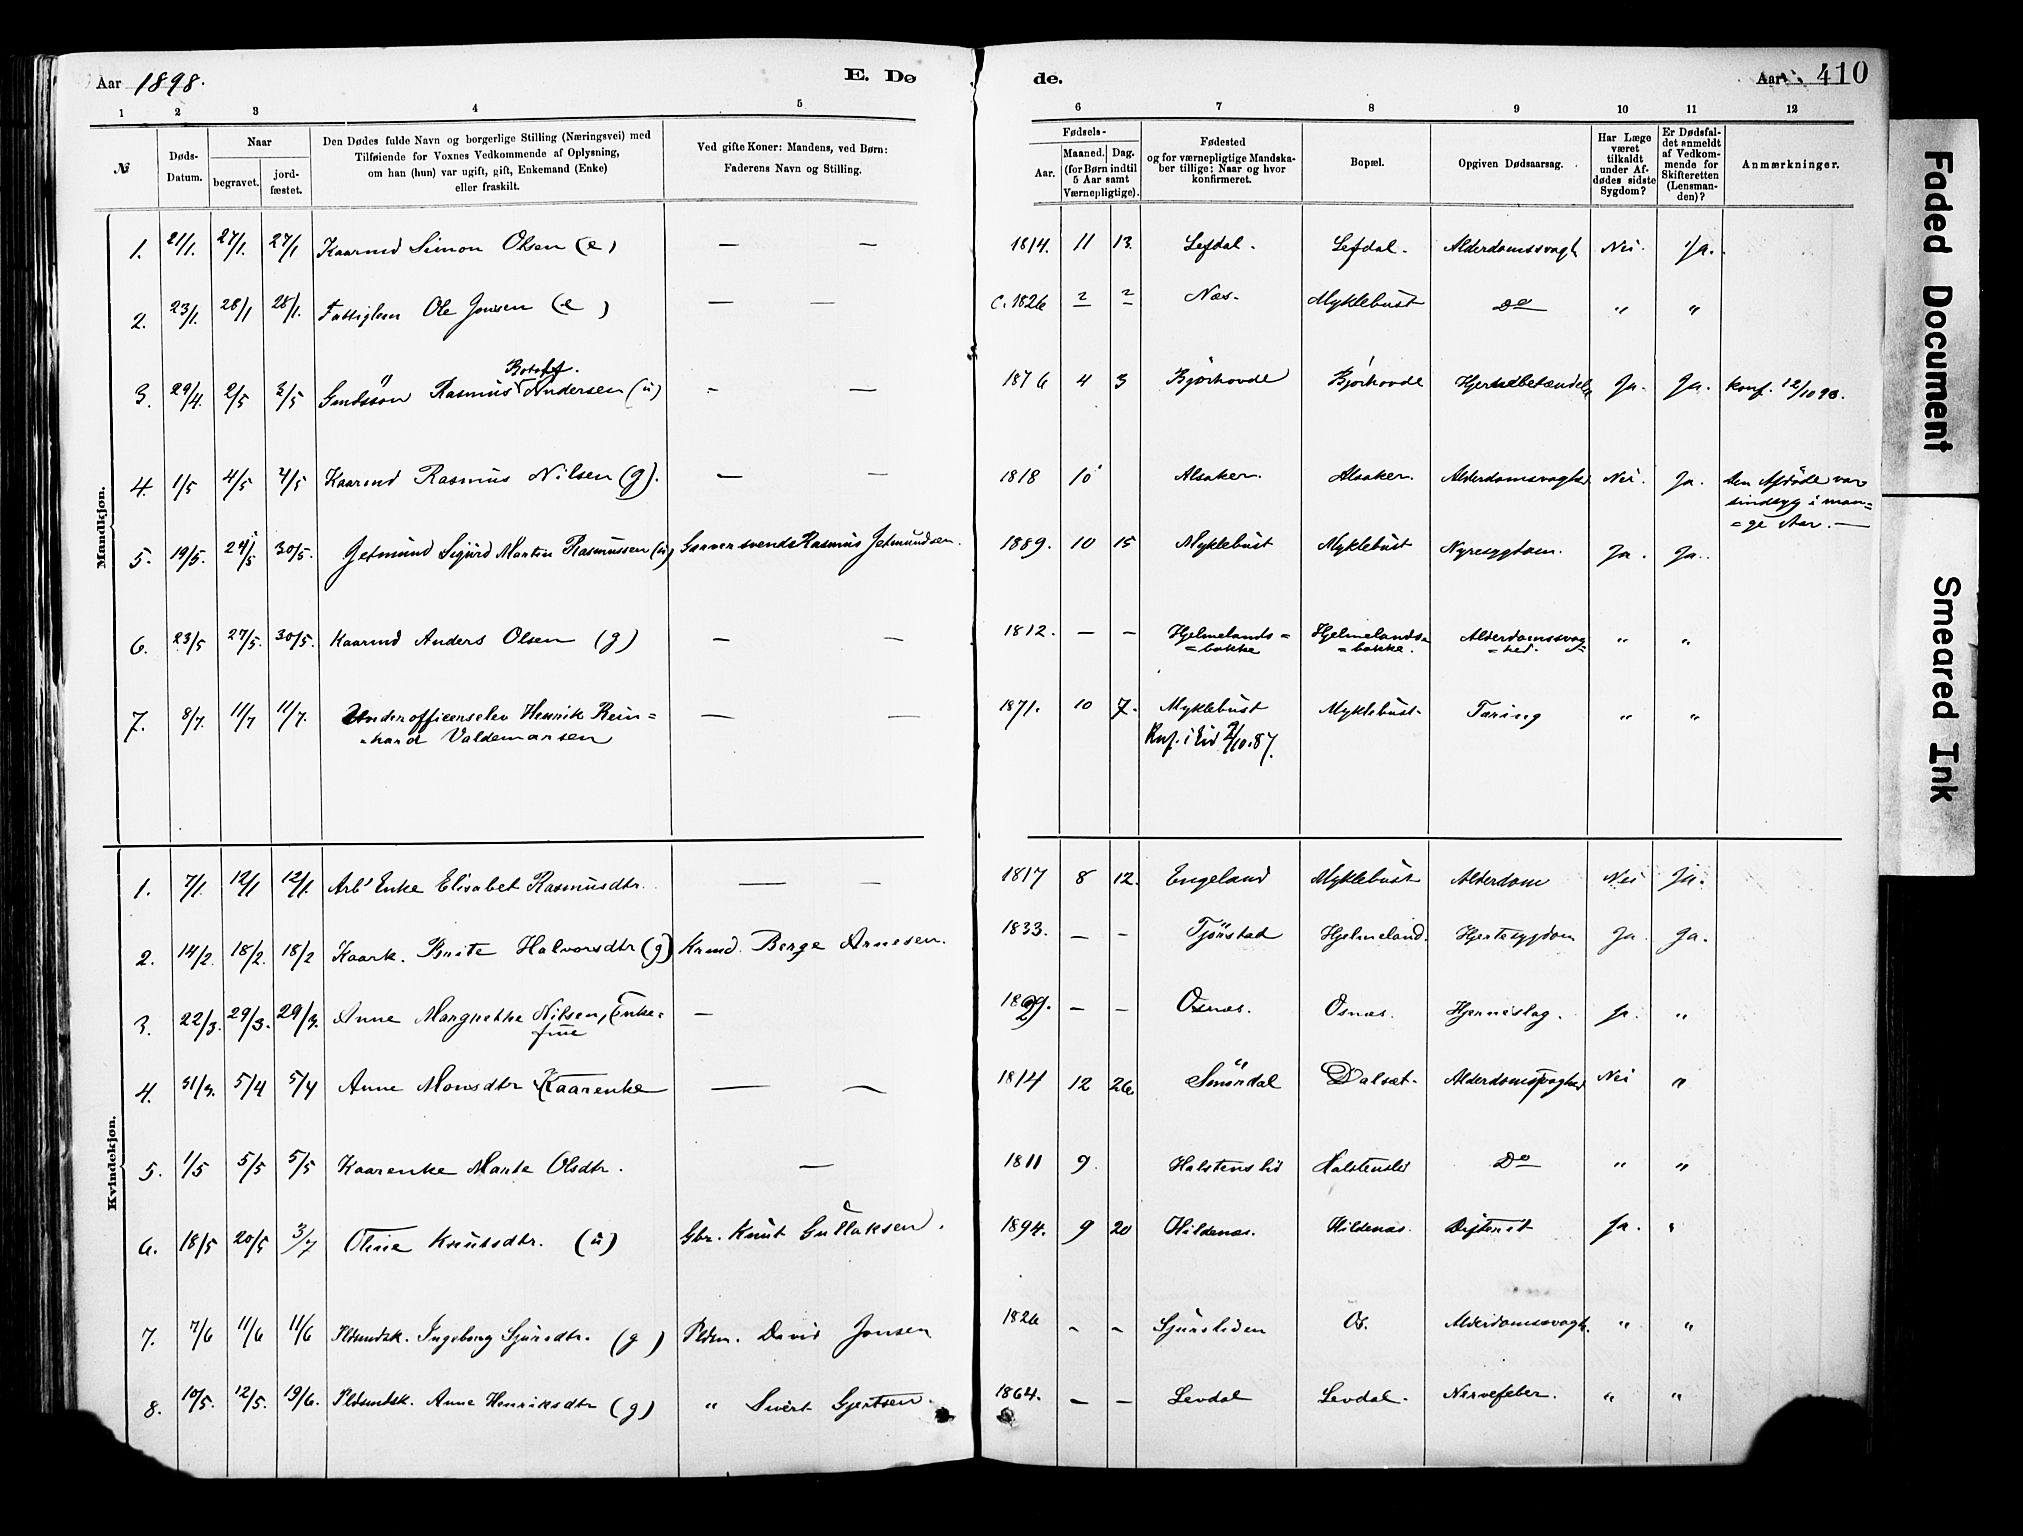 Aar 1898. E. Dø de. Aar 410
1 2 3 4 5 6 7 8 9 10 11 12
№
Døds-Datum.
Naar
begravet.
jord-fæstet.
Den Dødes fulde Navn og borgerlige Stilling (Næringsvei) med
Tilføiende for Voxnes Vedkommende af Oplysning,
om han (hun) var ugift, gift, Enkemand (Enke)
eller fraskilt.
Ved gifte Koner: Mandens, ved Børn:
Faderens Navn og Stilling.
Fødsels-
Aar.
Maaned. Dag.
(for Børn indtil
5 Aar samt
Værnepligtige).
Fødested
og for værnepligtige Mandska-
ber tillige: Naar og hvor
konfirmeret.
Bopæl.
Opgiven Dødsaarsag.
Har Læge
været
tilkaldt
under Af-
dødes sidste
Sygdom?
Er Dødsfal-
det anmeldt
af Vedkom-
mende for
Skifteretten
(Lensman-
den)?
Anmærkninger.
Mandkjøn.
1. 21/1. 27/1. 27/1 Kaarmd Simon Olsen (e) — — 1814. 11 13. Lefdal. Lefdal. Alderdomssvagh Nei Ja.
2. 23/1. 28/1 28/1. Fattiglem Ole Jonsen (e) — — c. 1826 ? ? Næs. Myklebust Do " "
3. 29/4. 2/5 2/5 Gmdssön Rasmus Andersen (u) - — 1876 4 3 Bjørhovde Bjørhovde Hjernebetændelse Ja. Ja. Konf. 12/10 90.
4. 1/5 4/5 4/5 Kaarmd Rasmus Nilsen (g). — — 1818 10 Alsaker. Alsaker. Alderdomsvaghd Nei. Ja. Den Afdöde var
sindsyg i man=
=ge Aar. —
5. 19/5. 24/5 30/5. Jetmund Sigurd Martin Rasmussen (u) Garversvends Rasmus Jetmundsen. 1889. 10 15 Myklebust Myklebust Nyresygdom. Ja. Ja.
6. 23/5 27/5. 30/5. Kaarmd Anders Olsen (g) — — 1812. — — Hjelmelands=
=bakke Hjelmelands=
=bakke. Alderdomssvag=
=hed. " "
7. 8/7. 11/7 11/7. Underofficerselev Henrik Rein=
=hardt Valdemarsen — — 1871. 10 7. Myklebust Myklebust Tæring " "
Knf. i Eid 2/10.87.
Kvindekjøn.
1. 7/1. 12/1 12/1. Arbs Enke Elisabet Rasmusdtr. — — 1817 8 12. Engeland Myklebust Alderdom Nei Ja.
2. 14/2. 18/2. 18/2 Kaark. Brite Halvorsdtr (g) Krmd. Berge Arnesen. 1833. — — Tjönstad Hjelmeland. Hjertesygdom Ja. Ja.
3. 22/3. 29/3. 29/3. Anne Margrethe Nilsen, Enke=
frue — — — Osnæs. Osnæs. Hjerneslag. Ja. "
4. 31/3. 5/4 5/4 Anne Monsdtr Kaarenke — — 1814 12 26 Smördal Dalsæt. Alderdomssvaghed Nei "
5. 1/5 5/5 5/5 Kaarenke Marte Olsdtr. — 1811 9. Halstenslid Halstenslid Do " "
6. 18/5 20/5 3/7 Oline Knutsdtr. (u) Gbr. Knut Gullaksen. 1894. 9 20 Hildenæs. Hildenæs. Difterit Ja. "
7. 7/6 11/6 11/6 Pldsmdsk. Ingeborg Sjursdtr. (g) Pldsm. David Jonsen 1826 - - Sjursliden Os. Alderdomssvagh. " "
8. 10/5. 12/5. 19/6. Pldsmdsk. Anne Henriksdtr (g) " Sivert Gjertsen. 1864. — — Levdal Levdal. Nervefeber. " "
Faded Document
Smeared Ink